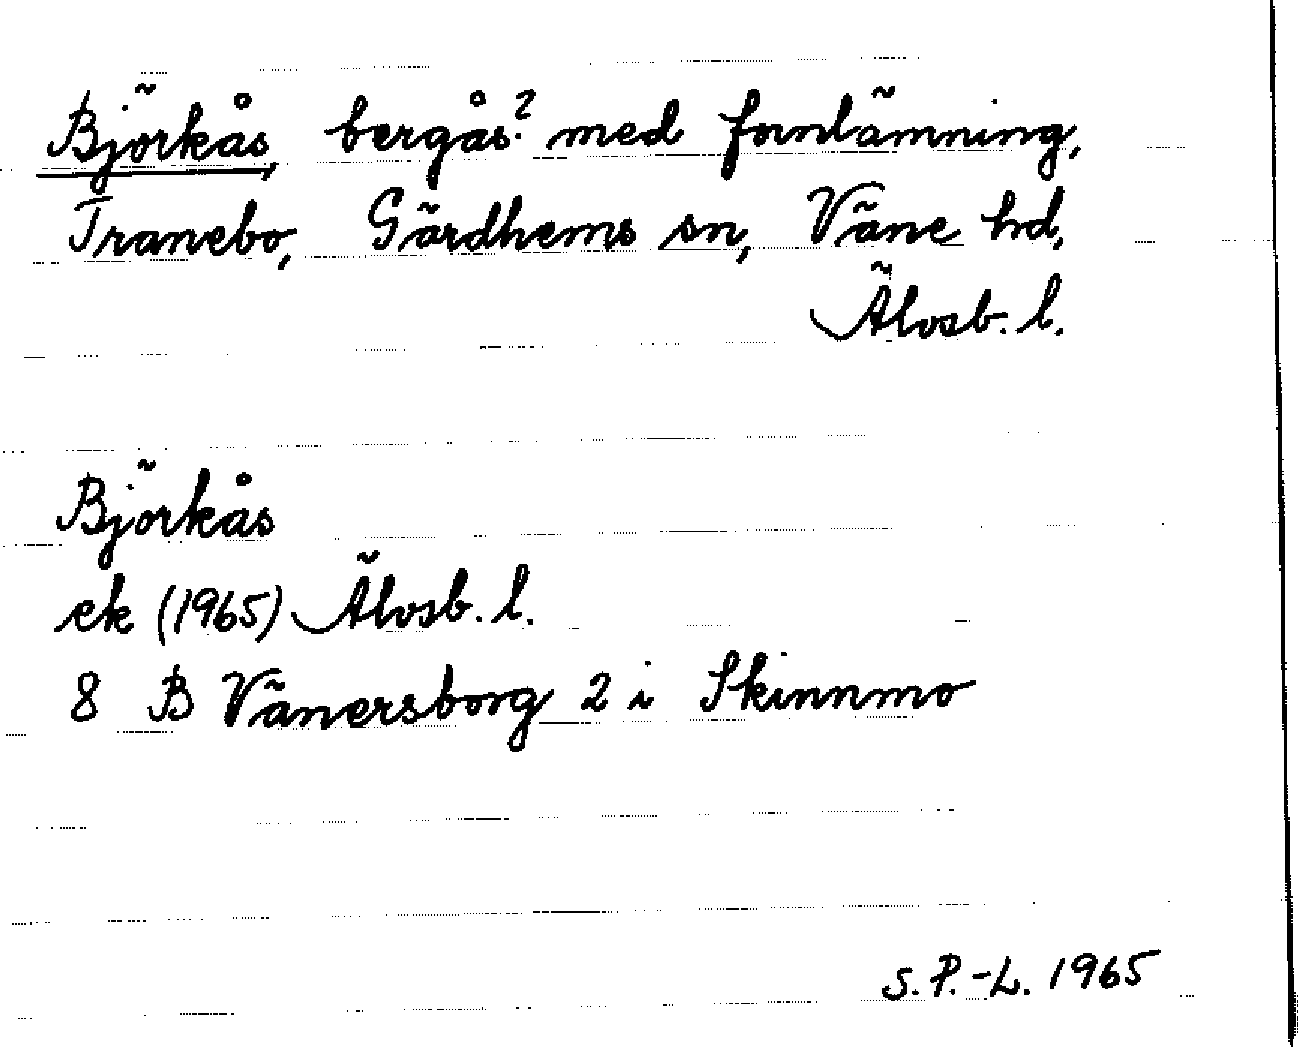 Björkås, bergås? med fornlämning,
Tranebo, Gärdhems sn, Väne hd,
Älvsb. l.
Björkås
ek (1965) Älvsb. l.
8 B Vänersborg 2 i Skinnmo
S. P.-L. 1965